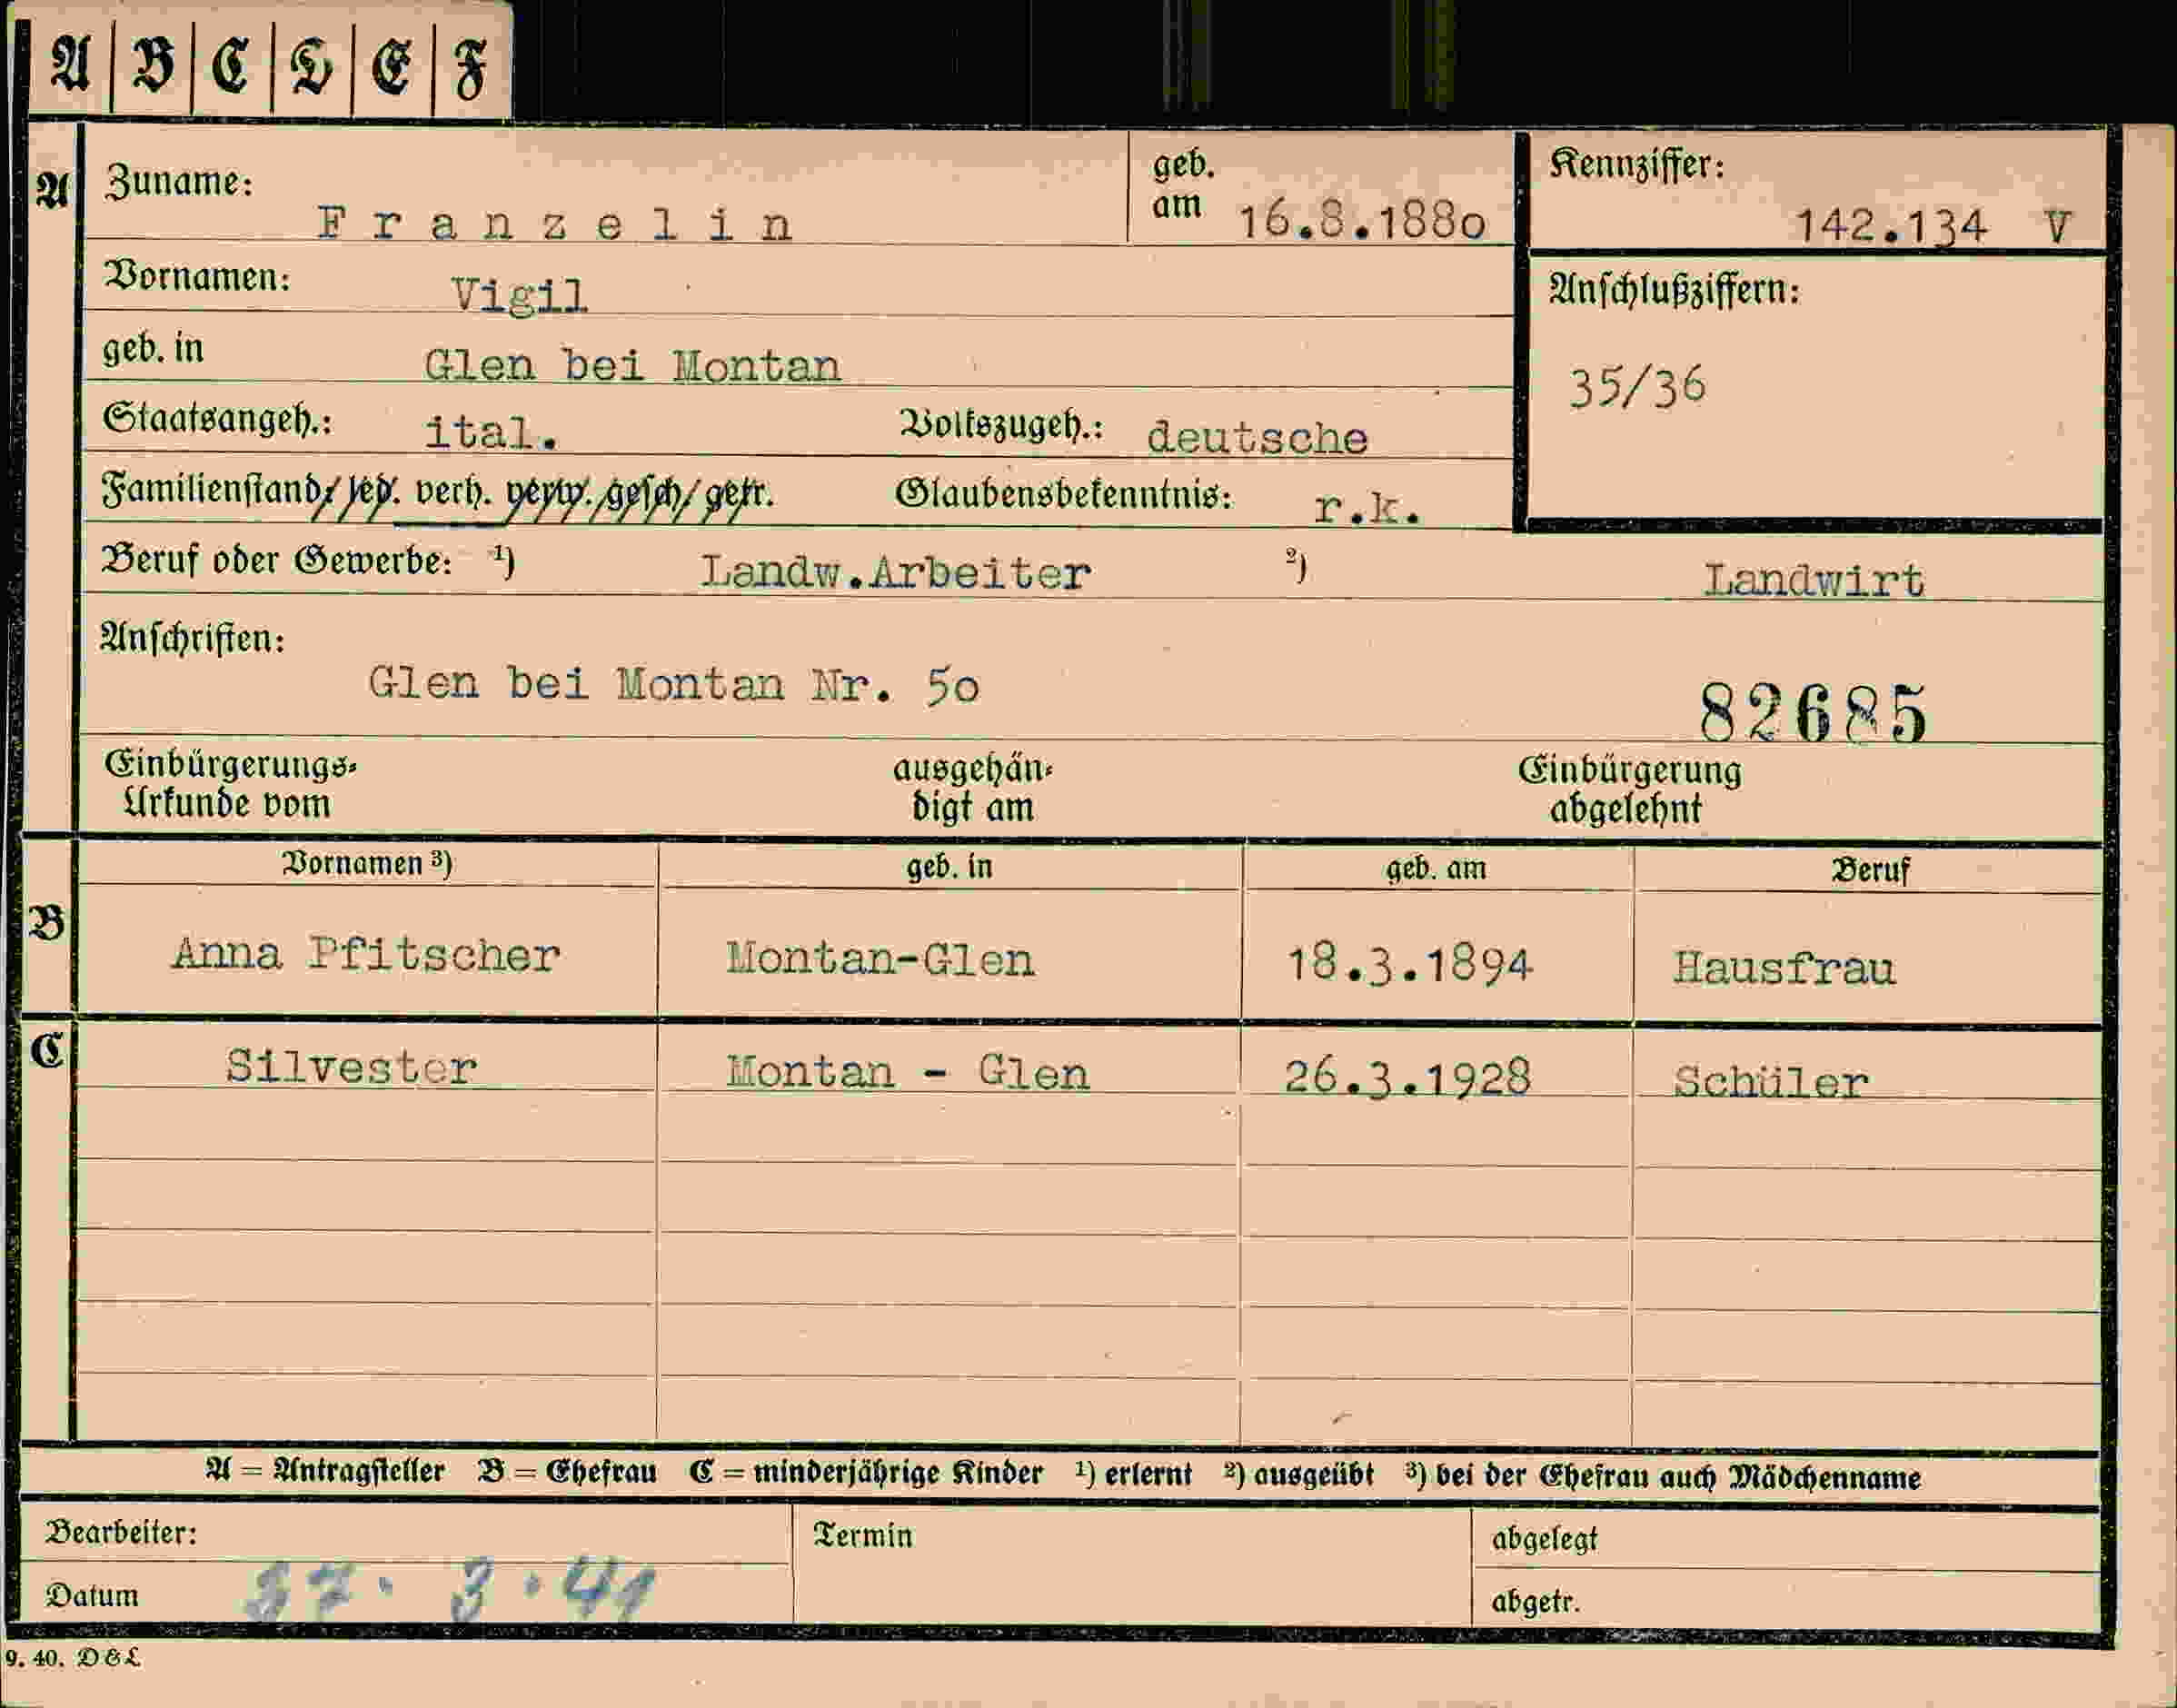 A B C D E F
A Zuname: Franzelin geb. am 16.8.1880 Kennziffer: 142.134 V
Vornamen: Vigil Anschlußziffern:
geb. in Glen bei Montan 35/36
Staatsangeh.: ital. Volkszugeh.: deutsche
Familienstand: led. verh. verw. gesch. getr. Glaubensbekenntnis: r.k.
Beruf oder Gewerbe: 1) Landw.Arbeiter 2) Landwirt
Anschriften:
Glen bei Montan Nr. 50 82685
Einbürgerungs- ausgehän- Einbürgerung
Urkunde vom digt am abgelehnt
Vornamen 3) geb. in geb. am Beruf
B Anna Pfitscher Montan-Glen 18.3.1894 Hausfrau
C Silvester Montan - Glen 26.3.1928 Schüler
A = Antragsteller B = Ehefrau C = minderjährige Kinder 1) erlernt 2) ausgeübt 3) bei der Ehefrau auch Mädchenname
Bearbeiter: Termin abgelegt
Datum abgetr.
9. 40. D&L